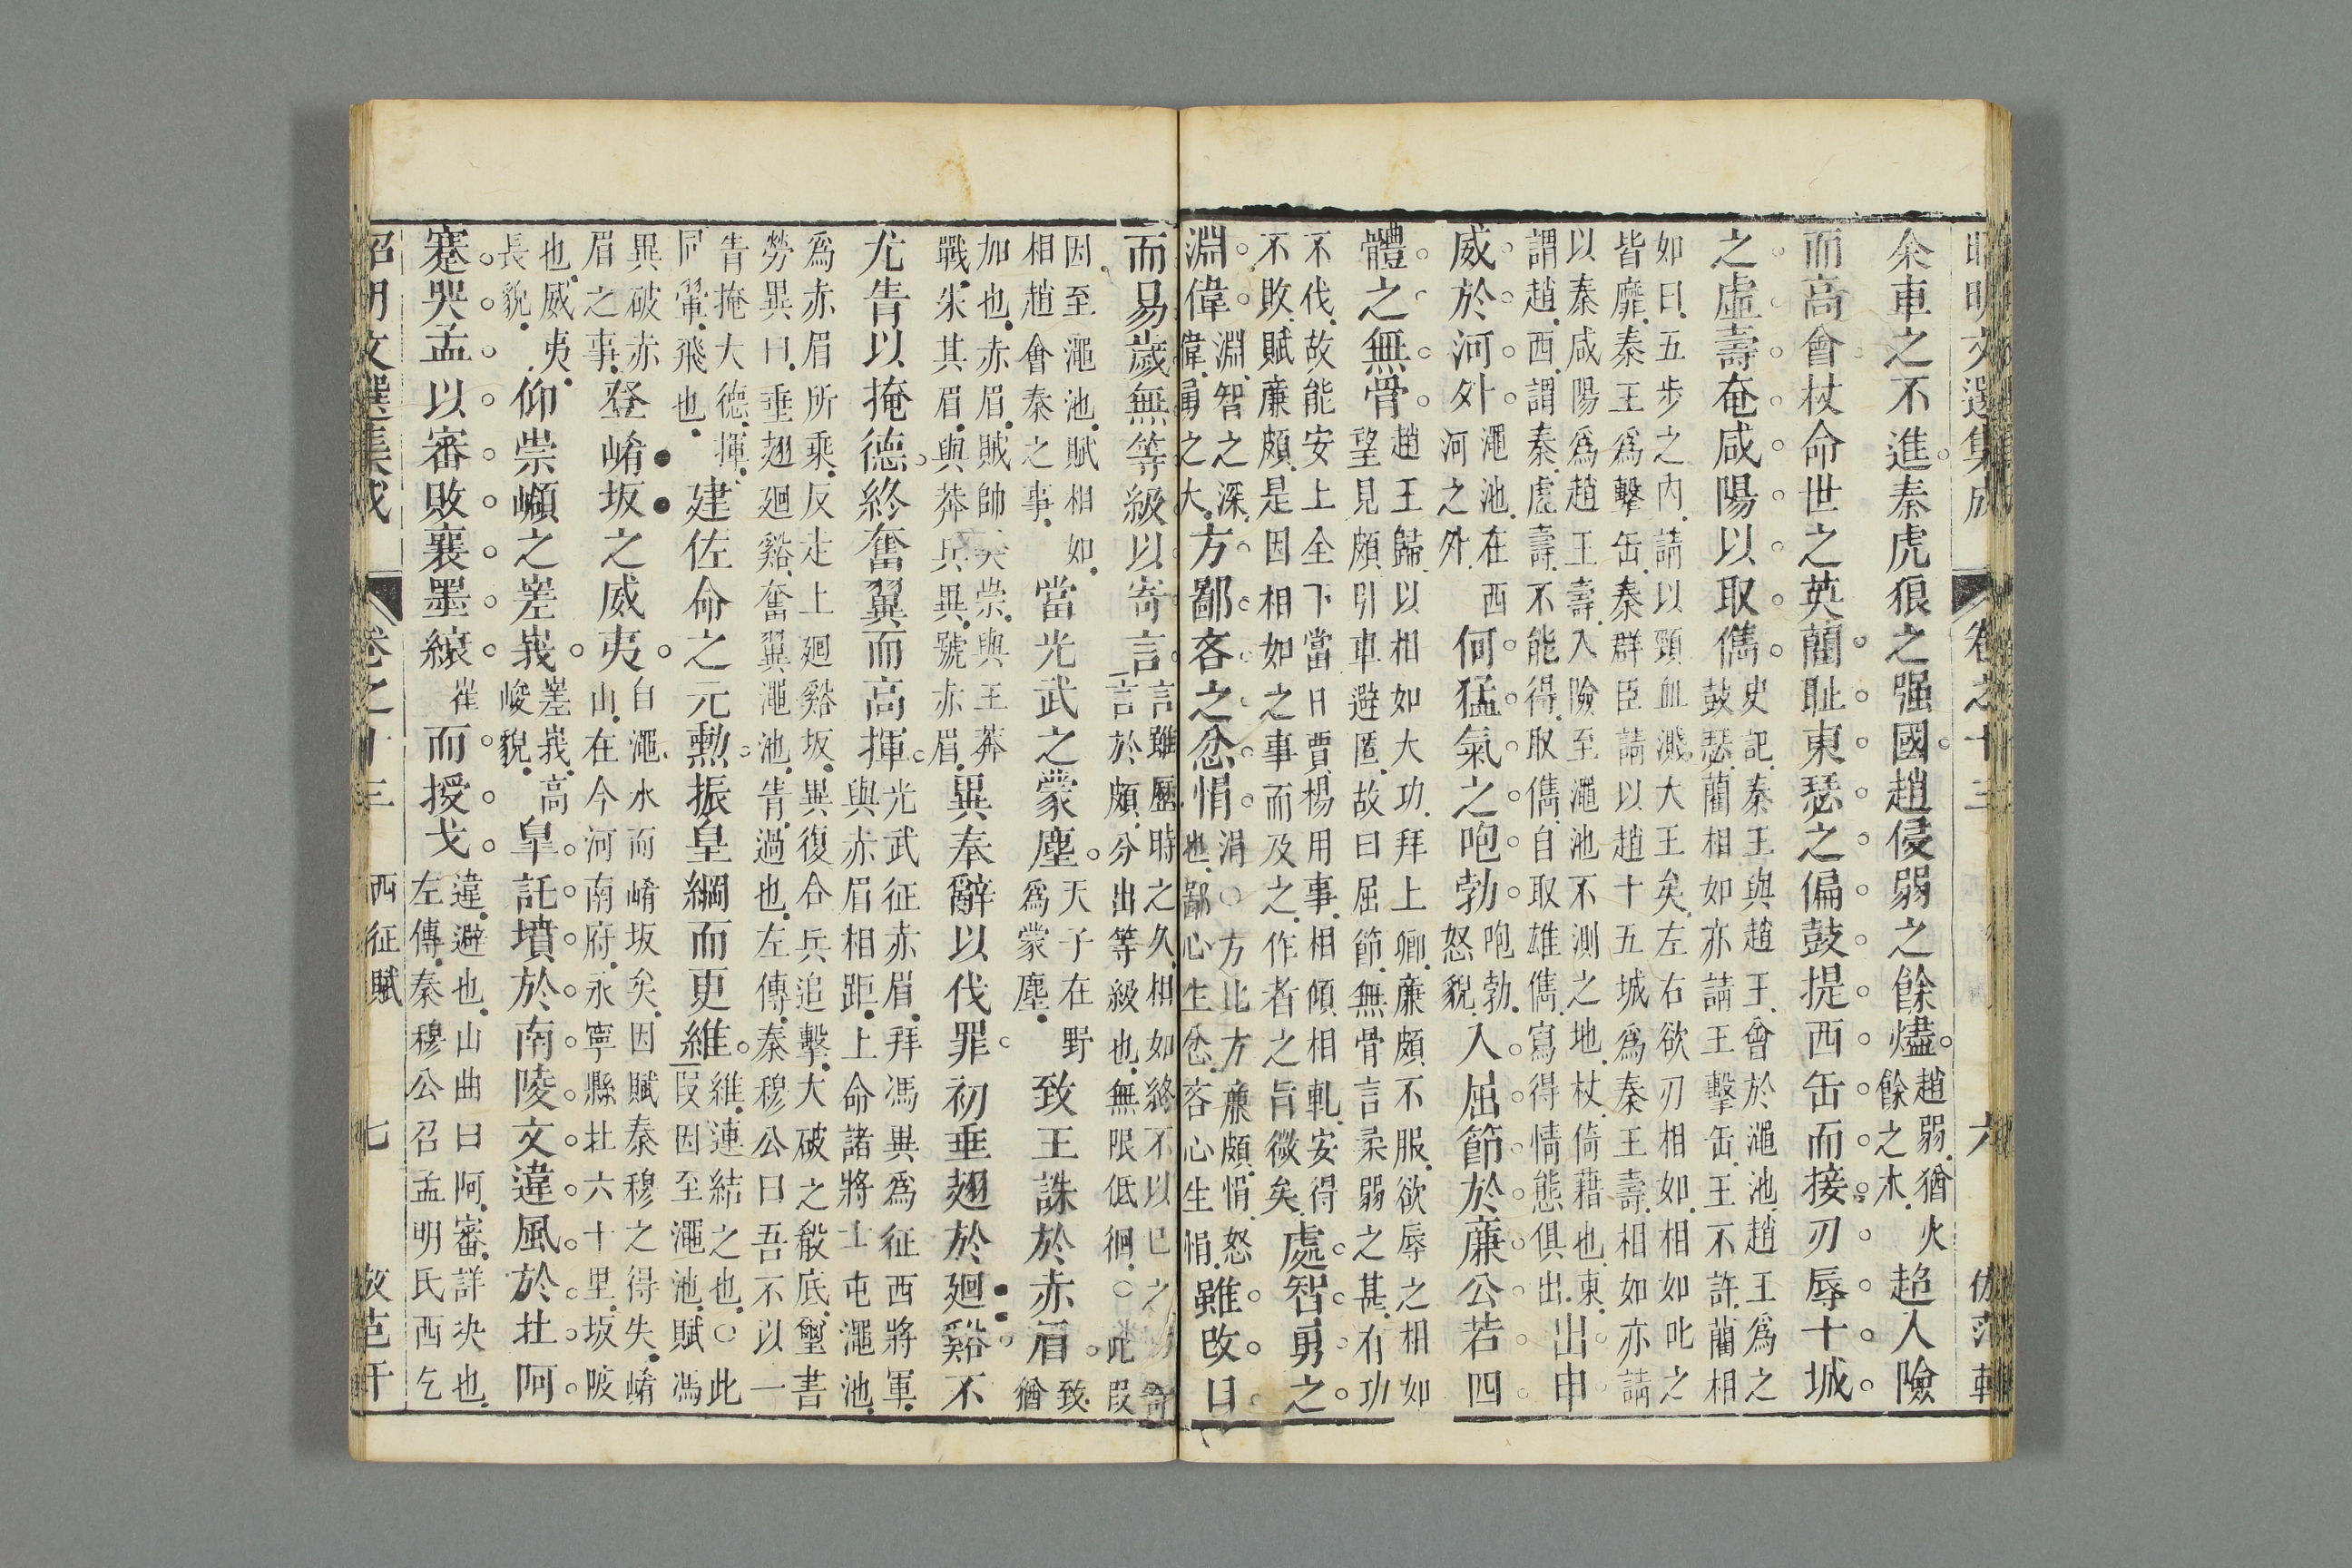 昭明文選集成 卷之十三 六 倣范軒
余車之不進秦虎狼之强國趙侵弱之餘燼趙弱猶火餘之木趙入險
而高會杖命世之英藺恥東瑟之偏鼓提西缶而接刃辱十城
之虛壽奄咸陽以取儁史記秦王與趙王會於澠池趙王爲之鼓瑟藺相如亦請王擊缶王不許藺相
如曰五步之內請以頸血濺大王矣左右欲刃相如相如叱之皆靡秦王爲擊缶秦群臣請以趙十五城爲秦王壽相如亦請
以秦咸陽爲趙王壽入險至澠池不測之地杖倚藉也東謂趙西謂秦虛壽不能得取儁自取雄儁寫得情態俱出出申
威於河外澠池在西河之外何猛氣之咆勃咆勃怒貌入屈節於廉公若四
體之無骨趙王歸以相如大功拜上卿廉頗不服欲辱之相如望見頗引車避匿故曰屈節無骨言柔弱之甚有功
不伐故能安上全下當日賈楊用事相傾相軋安得不敗賦廉頗是因相如之事而及之作者之旨微矣處智勇之
淵偉淵智之深偉勇之大方鄙吝之忿悁涓○方比方廉頗悁怒也鄙心生忿吝心生悁雖改日
而易歲無等級以寄言言雖歷時之久相如終不以已之功寄言於頗分出等級也無限低徊○此段
因至澠池賦相如相趙會秦之事當光武之蒙塵天子在野爲蒙塵致王誅於赤眉致猶
加也赤眉賊帥樊崇與王莽戰朱其眉與莽兵異號赤眉異奉辭以伐罪初垂翅於廻谿不
尤眚以掩德終奮翼而高揮光武征赤眉拜馮異爲征西將軍與赤眉相距上命諸將士屯澠池
爲赤眉所乘反走上廻谿坂異復合兵追擊大破之殽底璽書勞異曰垂翅廻谿奮翼澠池眚過也左傳秦穆公曰吾不以一
眚掩大德揮同翬飛也建佐命之元勳振皇綱而更維維連結之也○此段因至澠池賦馮
異破赤眉之事登崤坂之威夷自澠水而崤坂矣因賦秦穆之得失崤山在今河南府永寧縣北六十里坂陂
也威夷長貌仰崇巘之嵳峩嵳峩高峻貌臯託墳於南陵文違風於北阿
蹇哭孟以審敗襄墨縗崔而授戈違避也山曲曰阿審詳决也左傳秦穆公召孟明氏西乞
昭明文選集成 卷之十三 西征賦 七 倣范軒